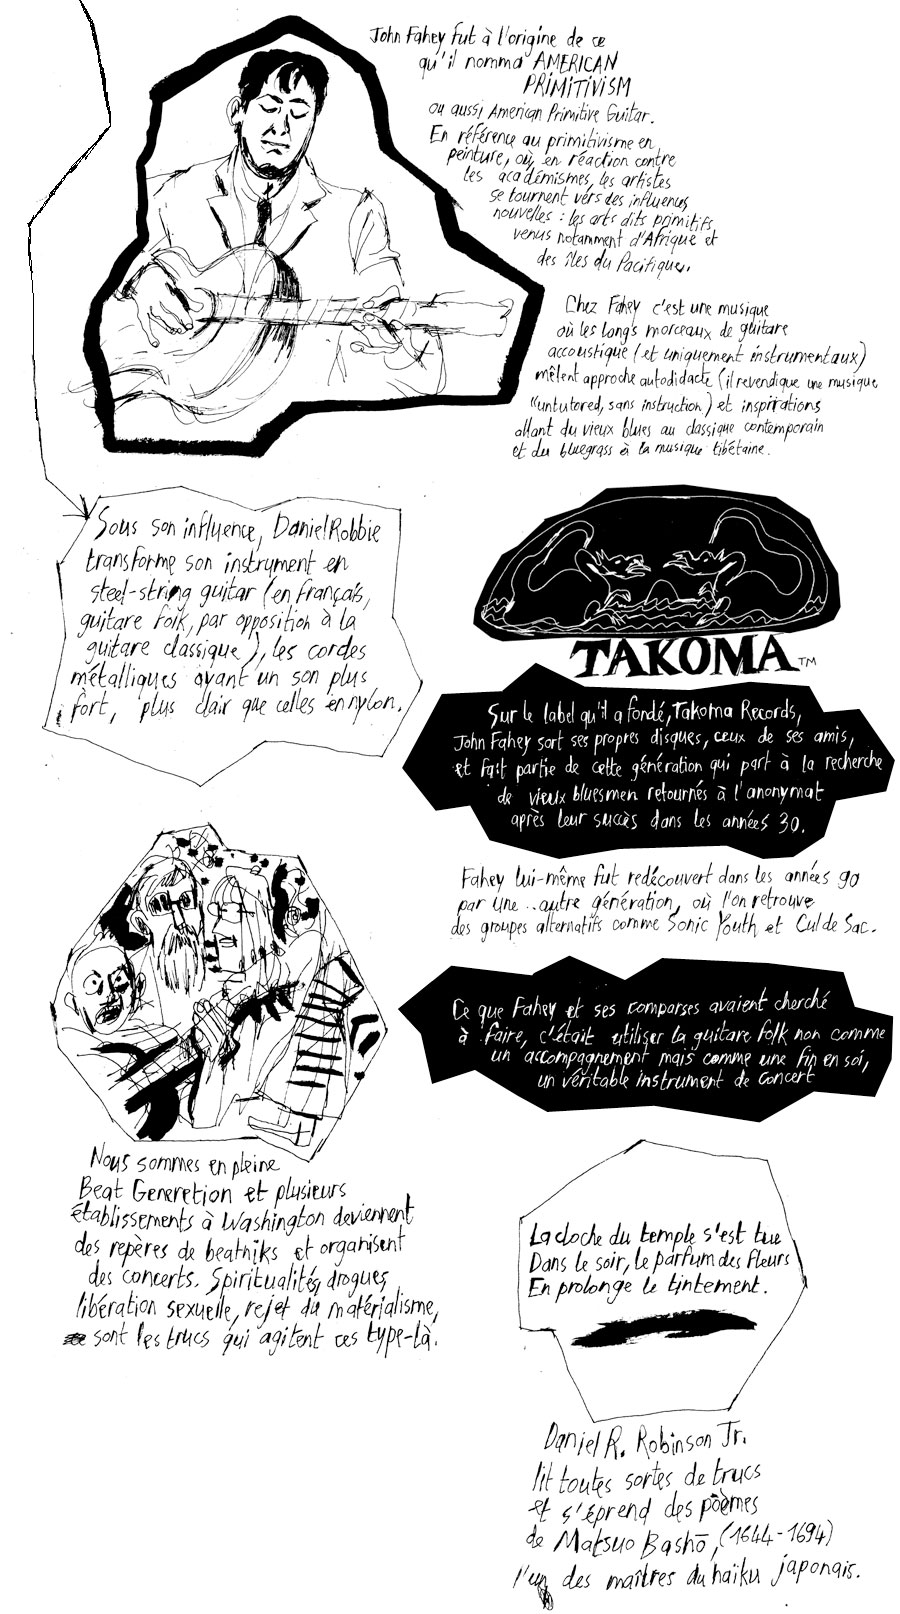 John Fahey fut à l'origine de ce
qu'il nomma AMERICAN
PRIMITIVISM
ou aussi American Primitive Guitar.
En référence au primitivisme en
peinture, où, en réaction contre
les académismes, les artistes
se tournent vers des influences
nouvelles : les arts dits primitifs,
venus notamment d'Afrique et
des îles du Pacifique.
Chez Fahey c'est une musique
où les longs morceaux de guitare
accoustique (et uniquement instrumentaux)
mêlent approche autodidacte (il revendique une musique
"untutored, sans instruction) et inspirations
allant du vieux blues au classique contemporain
et du bluegrass à la musique tibétaine.
Sous son influence, Daniel Robbie
transforme son instrument en
steel-string guitar (en français,
guitare folk, par opposition à la
guitare classique), les cordes
métalliques ayant un son plus
fort, plus clair que celles en nylon.
TAKOMA TM
Sur le label qu'il a fondé, Takoma Records,
John Fahey sort ses propres disques, ceux de ses amis,
et fait partie de cette génération qui part à la recherche
de vieux bluesmen retournés à l'anonymat
après leur succès dans les années 30.
Fahey lui-même fut redécouvert dans les années 90
par une autre génération, où l'on retrouve
des groupes alternatifs comme Sonic Youth et Cul de Sac.
Ce que Fahey et ses comparses avaient cherché
à faire, c'était utiliser la guitare folk non comme
un accompagnement mais comme une fin en soi,
un véritable instrument de concert
Nous sommes en pleine
Beat Generetion et plusieurs
établissements à Washington deviennent
des repères de beatniks et organisent
des concerts. Spiritualités, drogues,
libération sexuelle, rejet du matérialisme,
sont les trucs qui agitent ces type-là.
La cloche du temple s'est tue
Dans le soir, le parfum des fleurs
En prolonge le tintement.
Daniel R. Robinson Jr.
lit toutes sortes de trucs
et s'éprend des poèmes
de Matsuo Bashō, (1644-1694)
l'un des maîtres du haïku japonais.